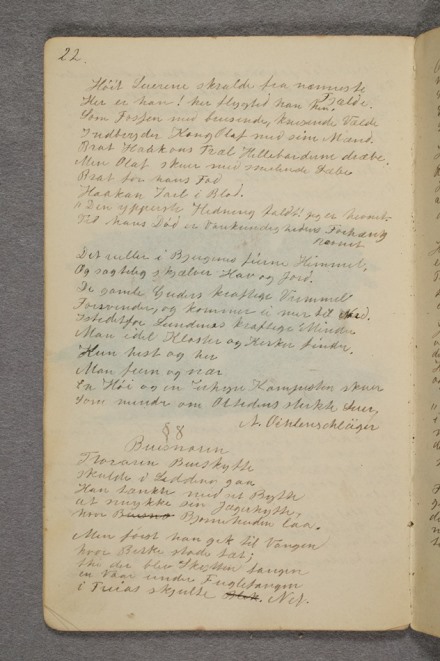 22.
Höit Luerene skralde fra næmmeste Fjelde.
Her er han! her flygted han hen.
Som Fossen med brusende, knusende Vælde
Indbryder Kong Olaf med sine Mænd.
Brat Haakons Træl Hellebarden dræbe,
Men Olaf skuer med smilende Læbe
Brat for hans Fod
Haakan Jarl i Blod.
"Den ypperste Hedning faldt! jeg er hevnet
Til hans Död er
Det ruller i Bjergene fjerne Himmel,
Og sagtelig skjælver Hav og Jord.
De gamle Guders kraftige Vrimmel
Forsvinder, og kommer ei mer til
Istedetfor Lundenes kraftige Minder
Man idel Kloster og Kirker finder.
Kun hist og her
Man fjern og nær
En Höi og en Kampesten skuer
Som minder om Oldtidens stærke Luer.
A. Oehlenschläger
§ 8
Björnen
Floraren Bueskytte
skulde i Leddno gaa
Han tænkte med et Bytte
at smykke sin Jægerhytte,
hvor Björnehuden laa.
Men först han gik til Vangen
hvor Birke stode tæt;
thi der blev Skytten fangen
en Vaar under Fuglesangen
i Trias skjulte Net.